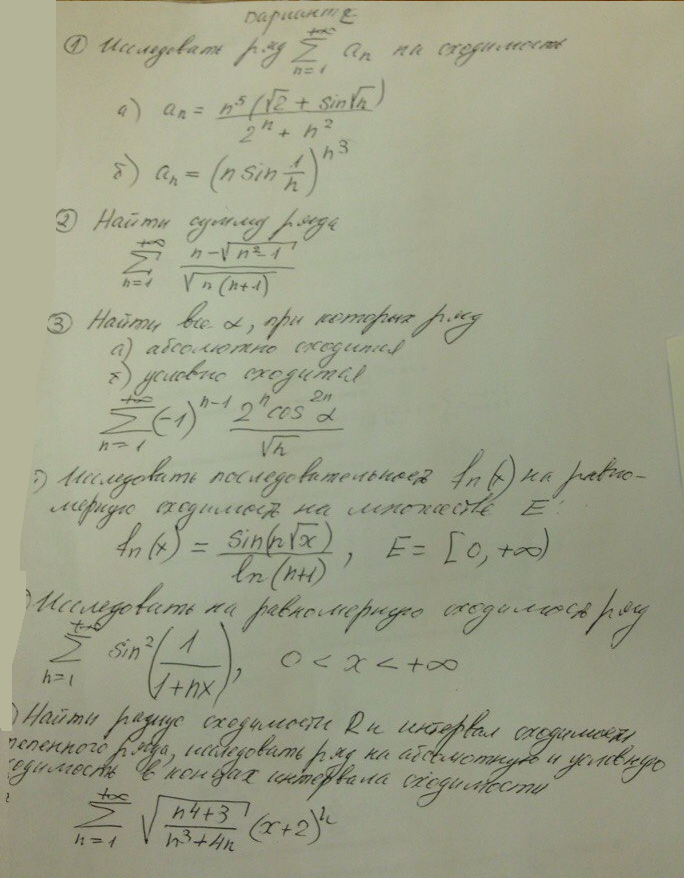 Вариант 2
① Исследовать ряд \sum_{n=1}^{+∞} a_n на сходимость
а) a_n = \frac{n^5(√2 + sin√n)}{2^n + n^2}
б) a_n = (n sin \frac{1}{n})^{n^3}
② Найти сумму ряда
\sum_{n=1}^{+∞} \frac{n-\sqrt{n^2-1}}{\sqrt{n(n+1)}}
③ Найти все α, при которых ряд
а) абсолютно сходится
б) условно сходится
\sum_{n=1}^{+∞} (-1)^{n-1} \frac{2^n cos^{2n} α}{√n}
) Исследовать последовательность f_n(x) на равно-
мерную сходимость на множестве E:
f_n(x) = \frac{sin(n√x)}{ln(n+1)}, E = [0, +∞)
) Исследовать на равномерную сходимость ряд
\sum_{n=1}^{+∞} sin^2(\frac{1}{1+nx}), 0 < x < +∞
) Найти радиус сходимости R и интервал сходимости
тепенного ряда, исследовать ряд на абсолютную и условную
ходимость в концах интервала сходимости
\sum_{n=1}^{+∞} \sqrt{\frac{n^4+3}{n^3+4n}} (x+2)^n